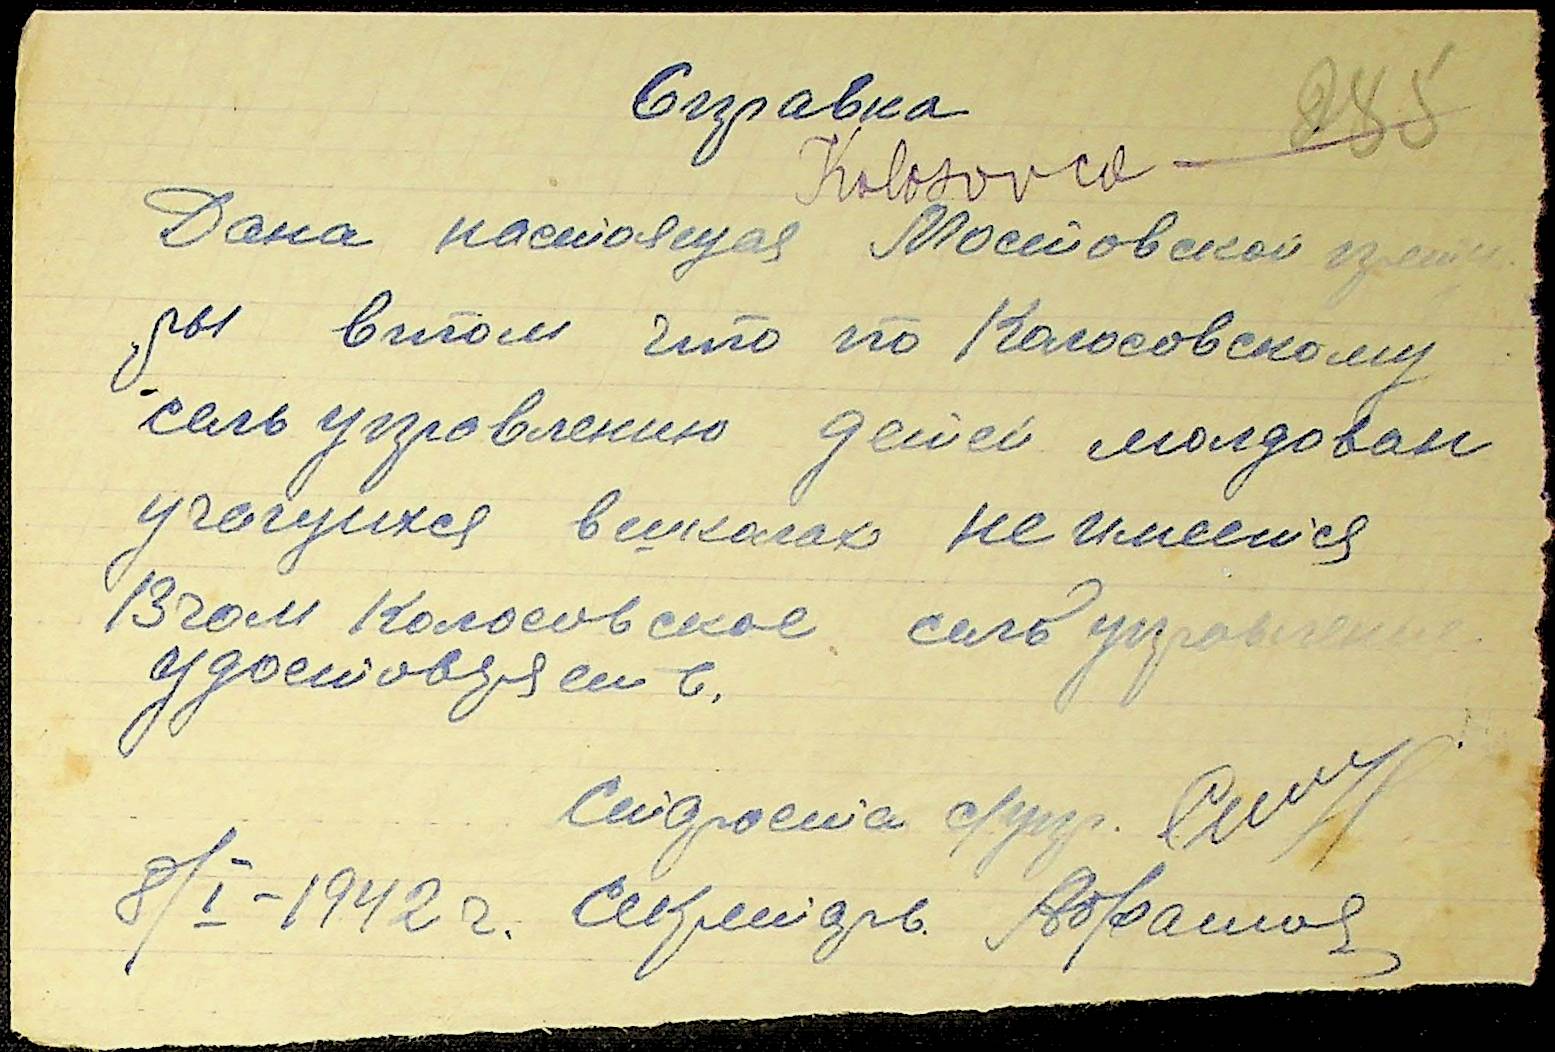 Справка
285
Kolosovca
Дана настоящая Мостовской прету
ры втом что по Колосовскому
сель управлению детей молдован
учащихся вшколах не имеется
Вчом Колосовское сель управление
удостовряеть.
Староста с/упр.
8/I-1942 г. Секретарь